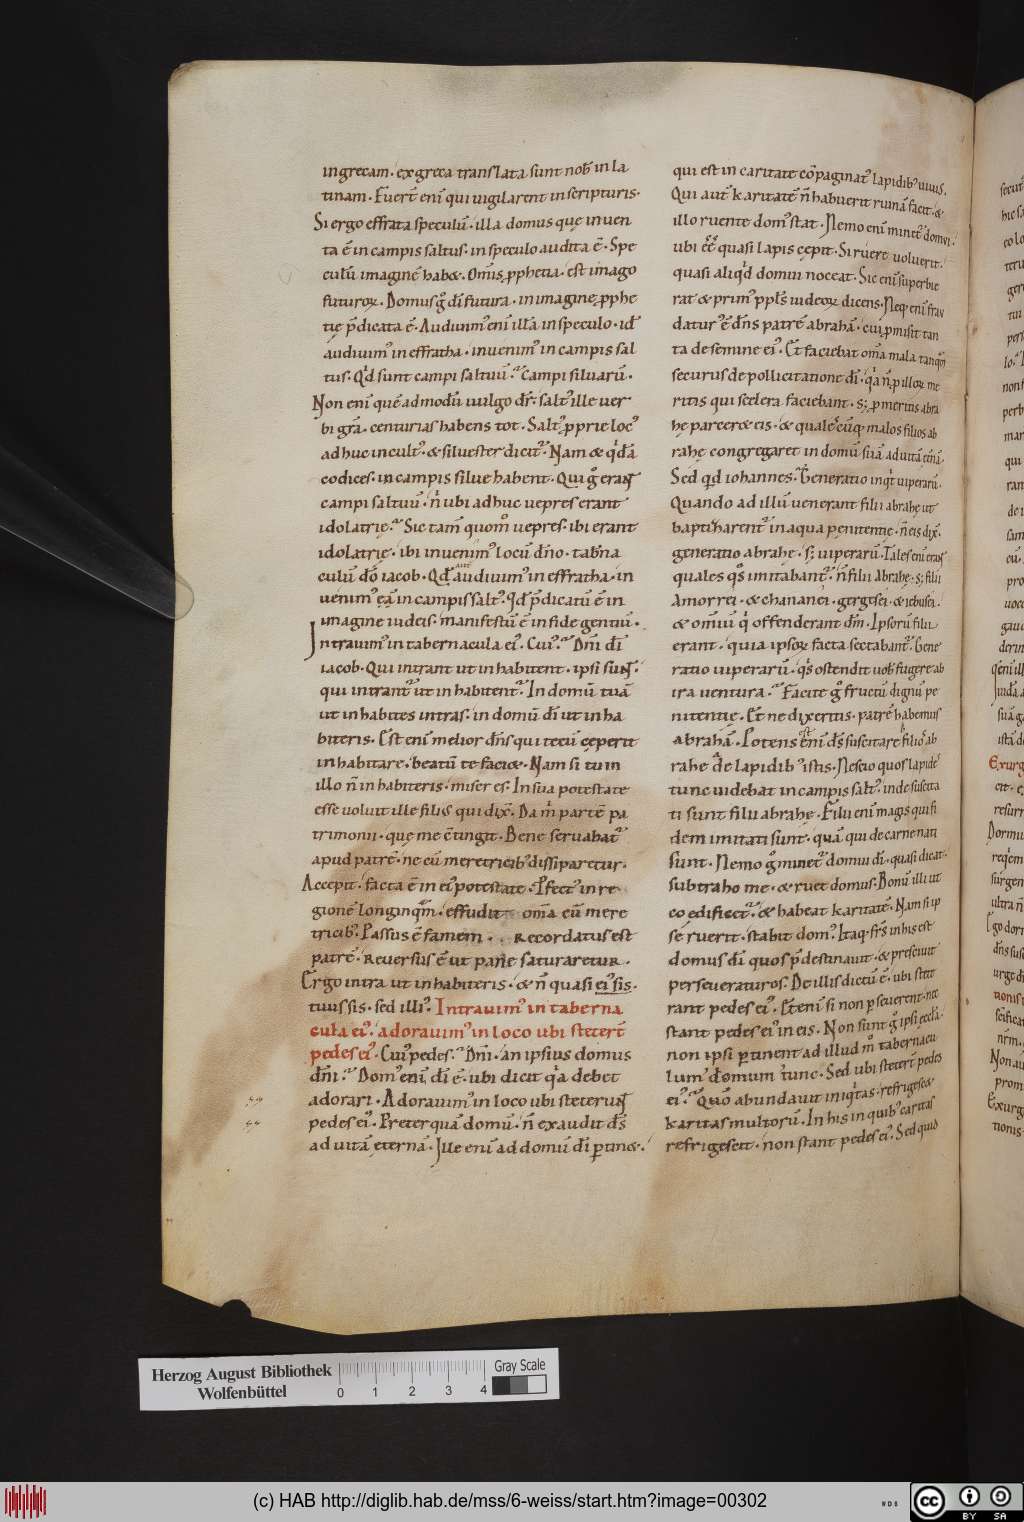 ingrecam. exgreca translata sunt nob̄ in la
tinam. Fuer̄t eni᷑ qui uigilarent in scripturis.
Si ergo effrata speculū. illa domus quę inuen
ta ē in campis saltus. in speculo audita ē. Spe
culū imaginē hab&. Om̄is ꝓphetia. est imago
futuroꝝ. Domus g̊ dī futura. in imagine ꝓphe
tię p̄dicata ē. Audiuim᾽ eni᷑ illā in speculo. id᾽
audiuim᾽ in effratha. inuenim᾽ in campis sal
tus. Qd̄ sunt campi saltuū. Campi siluarū.
Non eni᷑ quēadmodū uulgo dr̄. salt᾽ ille uer
bi gr̄a. centurias habens tot. Salt᾽ ꝓprie loc᾽
adhuc incult᾽. & siluester dicit᾽. Nam & qdā
codices. in campis silue habent. Qui g̊ erant
campi saltuū. n̄ ubi adhuc uepres erant
idolatrię. Sic tam̄ quom̊ uepres. ibi erant
idolatrię. ibi inuenim᾽ locū dn̄o. tab̄na
culū dō iacob. Qd̄ audiuim᾽ in effratha. in
uenim᾽ eā in campis salt᾽. Id᾽ p̄dicatū ē in
imagine iudeis. manifestū ē in fide gentiū.
Intrauim᾽ in tabernacula ei᾽. Cui᾽. Dn̄i dī
iacob. Qui intrant ut inhabitent. ipsi sunt.
qui intrant᾽ ut inhabitent᾽. In domū tuā
ut inhabites intras. in domū dī ut inha
biteris. Est eni᷑ melior dn̄s qui te cū ceperit
inhabitare. beatū te faci&. Nam si tu in
illo n̄ inhabiteris. miser es. In sua potestate
esse uoluit ille filius qui dix̄. Da m̄ partē pa
trimonii. quę me ctingit. Bene seruabat᾽
apud patrē. ne cū meretricib᾽ dissiparetur.
Accepit. facta ē in ei᾽ potestate. Pfect᾽ in re
gionē longinqm̄. effudit om̄a cū mere
tricib᾽. Passus ē famem. recordatus est
patrē. reuersus ē ut pane saturaretur.
Ergo intra ut inhabiteris. & n̄ quasi ei᾽ sis.
tuus sis. sed illi᾽. Intrauim᾽ in taberna
cula ei᾽. adorauim᾽ in loco ubi steter̄t
pedes ei᾽. Cui᾽ pedes. Dn̄i. an ipsius domus
dn̄i. Dom᾽ eni᷑ dī ē. ubi dicit q̄a debet
adorari. Adorauim᾽ in loco ubi steterunt
pedes ei᾽. Preter quā domū. n̄ exaudit ds̄
ad uitā ęternā. Ille eni᷑ ad domū dī ꝑtin&.
qui est in caritate cōpaginat᾽ lapidib᾽ uiuis.
Qui aut̄ karitatē n̄ habuerit ruinā facit. &
illo ruente dom᾽ stat. Nemo eni᷑ minet᾽ domui.
ubi ēē quasi lapis cępit. Si ruere uoluerit.
quasi aliqd domui noceat. Sic eni᷑ superbie
rat & prim᾽ ppl̄s iudeoꝝ dicens. Neq eni᷑ frau
datur᾽ ē dn̄s patrē abrahā. cui ꝓmisit tan
ta de semine ei᾽. Et faciebat om̄a mala tanqm̄
securus de pollicitatione dī. qa n̄ ꝓ illoꝝ me
ritis qui scelera faciebant. s; ꝓ meritis abra
hę parcer& eis. & qualescūq malos filios ab
rahę congregaret in domū suā ad uitā ęt̄nā.
Sed qd iohannes. Generatio inqt uiperarū.
Quando ad illū uenerant filii abrahę ut
baptizarent᾽ in aqua penitentię. n̄ eis dix̄.
generatio abrahę. s; uiperarū. Tales eni᷑ erant
quales qs imitabant᾽. n̄ filii Abrahę. s; filii
Amorrei. & chananei. gergesei. & iebusei.
& omniū q offenderant dm̄. Ipsorū filii
erant. quia ipsoꝝ facta sectabant᾽. Gene
ratio uiperarū. qs ostendit uob̄ fugere ab
ira uentura. Facite g̊ fructū dignū pe
nitentię. Et ne dixeritis. patrē habemus
abrahā. Potens est eni᷑ ds̄ suscitare filios ab
rahę de lapidib᾽ istis. Nescio quos lapides
tunc uidebat in campis salt᾽. inde suscita
ti sunt filii abrahę. Filii eni᷑ magis qui fi
dem imitati sunt. quā qui de carne nati
sunt. Nemo g̊ minet᾽ domui dī. quasi dicat.
subtraho me. & ruet domus. Bonū illi ut
co edificet᾽. & habeat karitatē. Nam si ip
se ruerit. stabit dom᾽. Itaq. frs̄ in his est
domus dī quos p̄destinauit. & presciuit
perseueraturos. De illis dictū ē. ubi stete
rant pedes ei᾽. Et eni᷑ si non ꝑseuerent. nec
stant pedes ei᾽ in eis. Non sunt g̊ ipsi eccl̄a.
non ipsi ꝑtinent ad illud m᾽ tabernacu
lum domum tunc. Sed ubi steter̄t pedes
ei᾽. Qūo abundauit iniqtas. refrigesc&
karitas multorū. In his in quib᾽ caritas
refrigescit. non stant pedes ei᾽. Sed quid
Herzog August Bibliothek
Wolfenbüttel
0 1 2 3 4
Gray Scale
(c) HAB http://diglib.hab.de/mss/6-weiss/start.htm?image=00302
cc BY SA